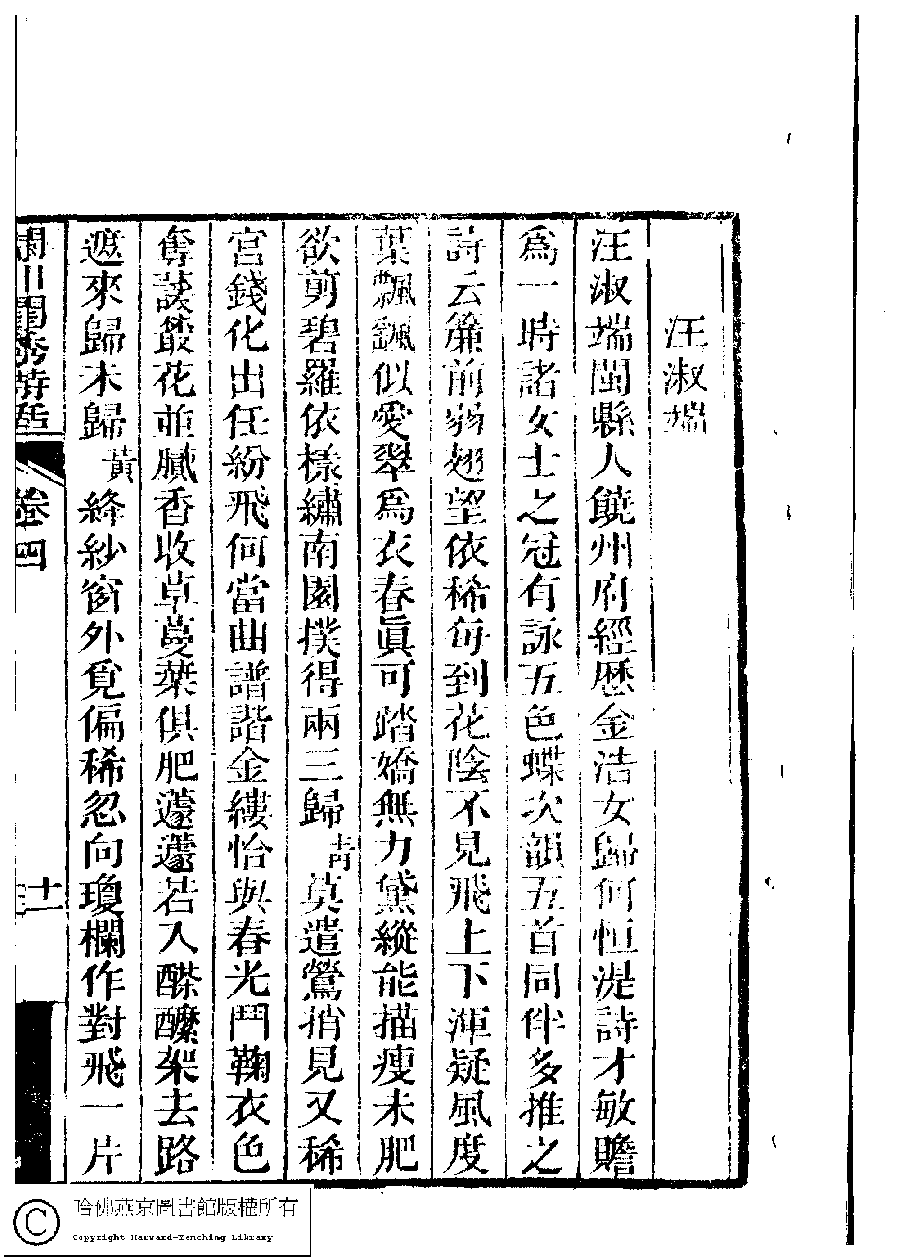 汪淑端
汪淑端閩縣人饒州府經歷金浩女歸何恒湜詩才敏贍
爲一時諸女士之冠有詠五色蝶次韻五首同伴多推之
詩云簾前弱翅望依稀每到花陰不見飛上下渾疑風度
葉飄飄似愛翠爲衣春眞可踏嬌無力黛縱能描瘦未肥
欲剪碧羅依樣繡南園撲得兩三歸青莫遣鶯捎見又稀
宮錢化出任紛飛何當曲譜諧金縷恰與春光鬥鞠衣色
奪菼叢花並膩香收草蔓菜俱肥蘧蘧若入醾架去路
遮來歸未歸黃絳紗窗外覓偏稀忽向瓊欄作對飛一片
閨秀詩話
卷四
十一
哈佛燕京圖書館版權所有
Copyright Harvard-Yenching Library